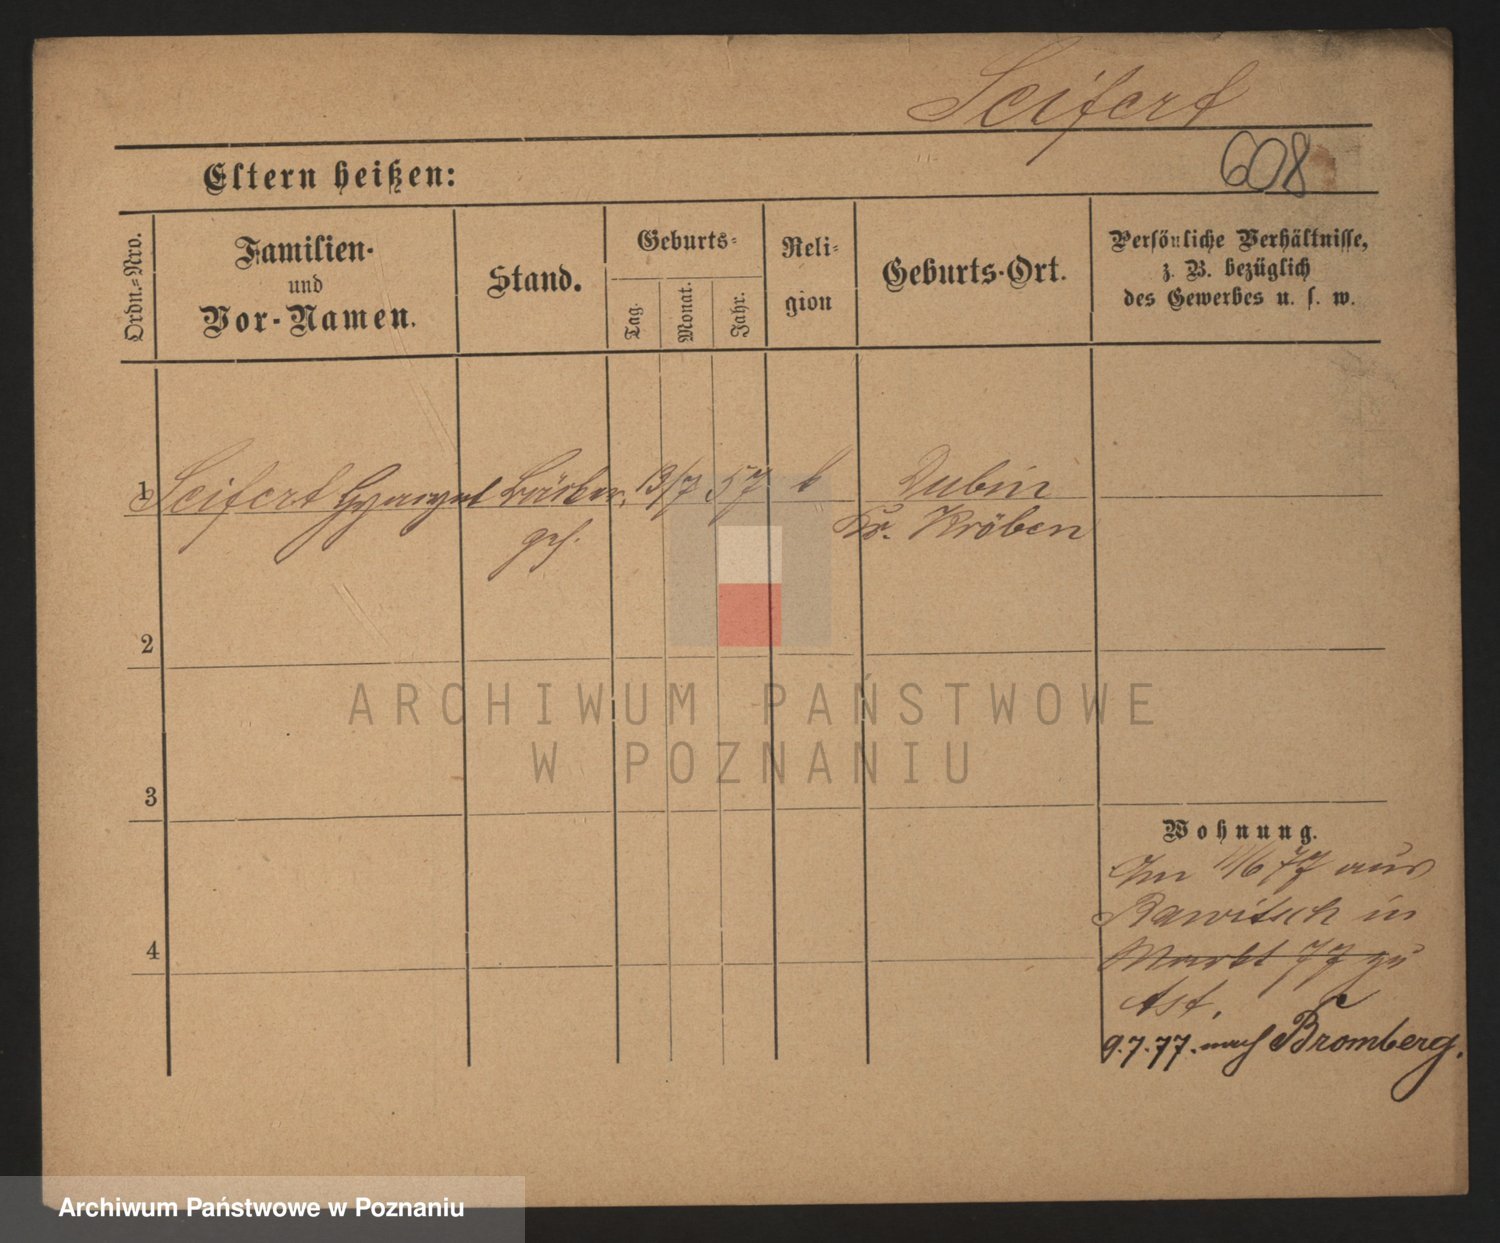 Seifert
608
Eltern heißen:
Ordn.-Nro.
Familien-
und
Vor-Namen.
Stand.
Geburts-
Tag.
Monat.
Jahr.
Reli-
gion
Geburts-Ort.
Persönliche Verhältnisse,
z. B. bezüglich
des Gewerbes u. s. w.
1 Seifert 13/7 57 k Dubin
Kr. Kröben
2
ARCHIWUM PAŃSTWOWE
W POZNANIU
3
Wohnung.
Im 11/6 77 aus
Rawitsch in
4
Markt 77 zu
9.7.77. nach Bromberg.
Archiwum Państwowe w Poznaniu